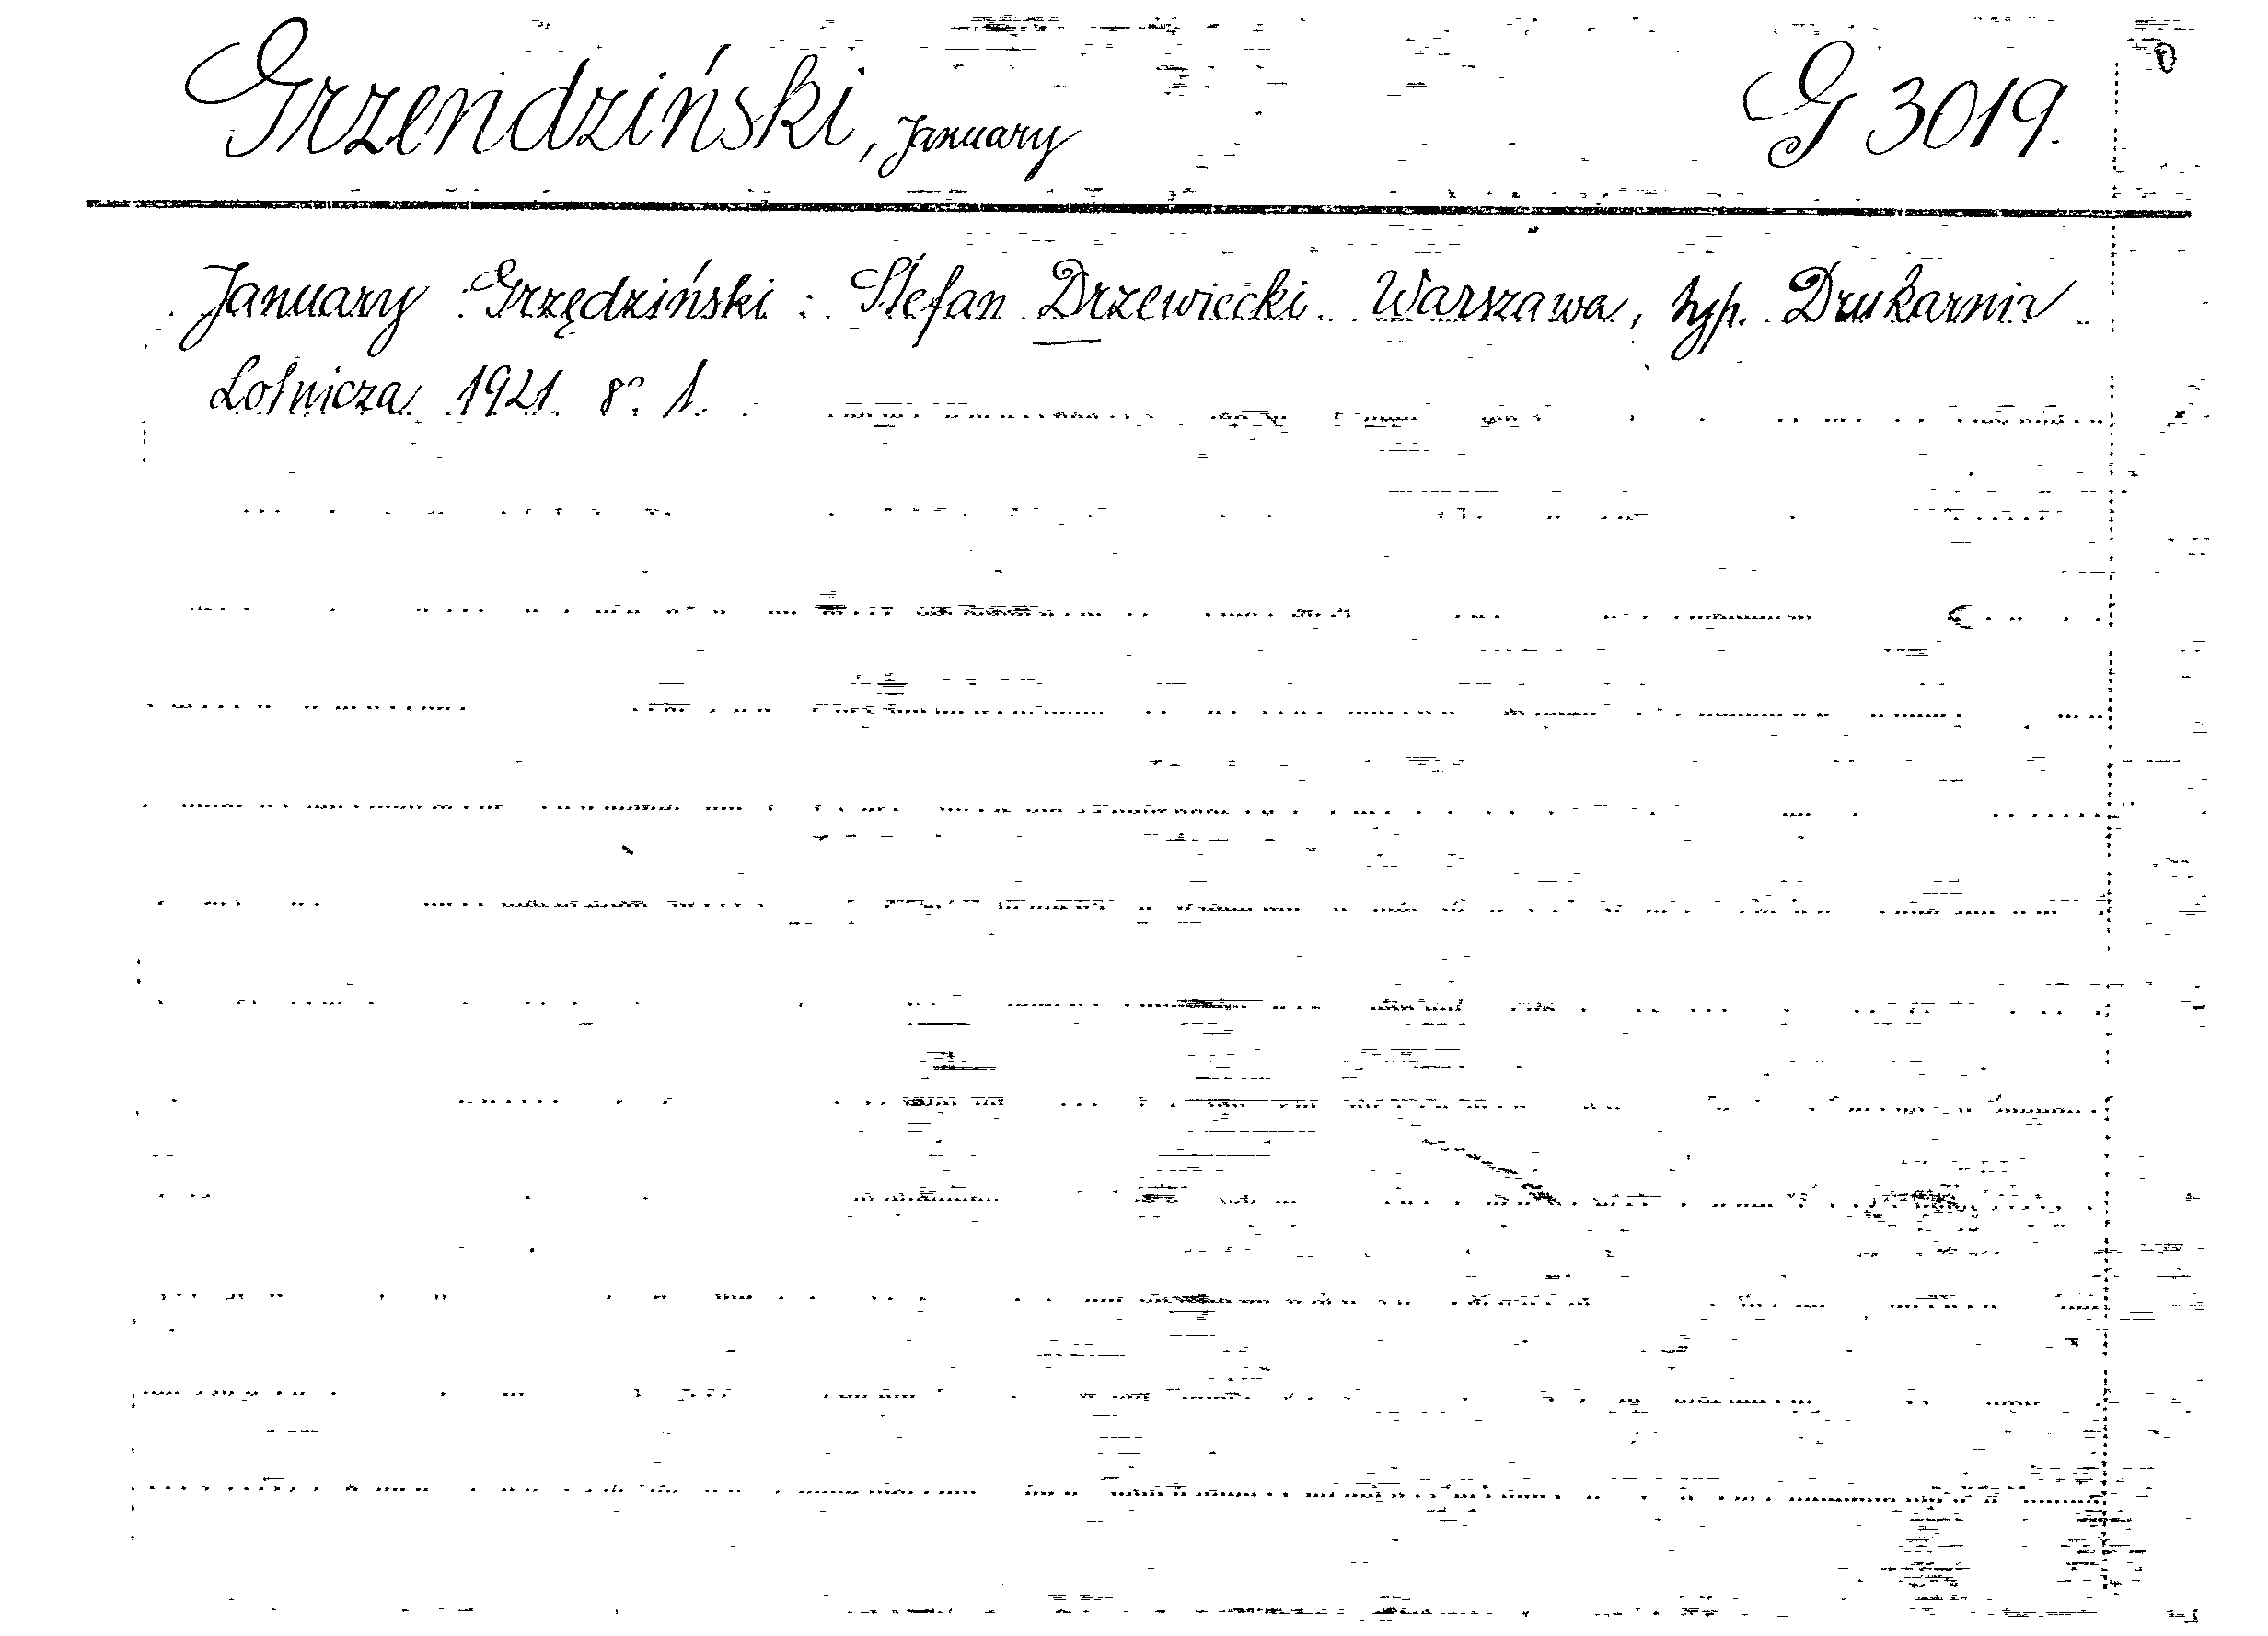 Grzendziński, January G 3019.
January Grzędziński: Stefan Drzewiecki. Warszawa, typ. Drukarnia
Lotnicza 1921. 8º. 1.